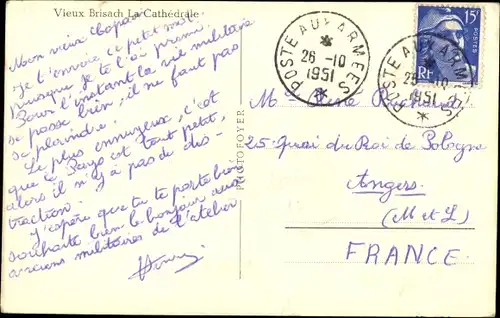 Vieux Brisach La Cathédrale
Mon vieux
Je t'envoie ce petit mot
puisque je te l'ai promis.
Pour l'instant la vie militaire
se passe bien, il ne faut pas
se plaindre.
Le plus ennuyeux, c'est
que le Pays est tout petit,
alors il n'y a pas de dis-
traction.
J'espère que tu te porte bien
souhaite bien le bonjour aux
anciens militaires de l'atelier
PHOTOFOYER
POSTE AUX ARMEES
26-10
1951
POSTE AUX ARMEES
25-10
1951
15F
POSTES
RF
M
25 Quai du Roi de Pologne
Angers
(M et L)
FRANCE